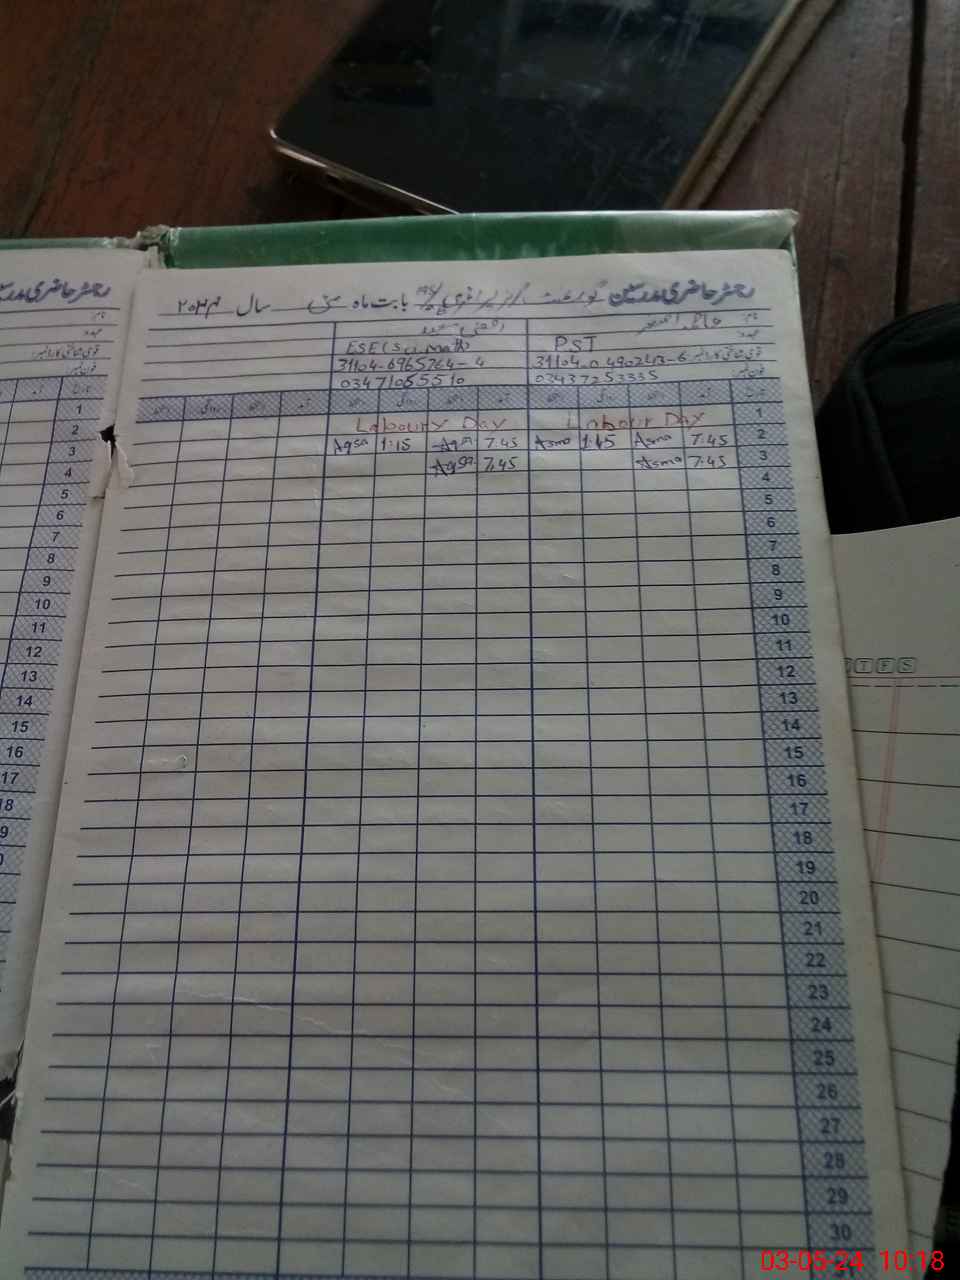 رجسٹر حاضری مدرسین گورنمنٹ بابت ماہ مئی سال ۲۰۲۴
نام
عہدہ
PST ESE(Sci math)
قومی شناختی کارڈ نمبر 31104-6965764-4
فون نمبر 03437253335 03471055510
1 Labour Day Labour Day
2 7:45 Asma 1:15 Asma 7:45 Aqsa 1:15 Aqsa
3 7:45 Asma 7:45 Aqsa
4
5
6
7
8
9
10
11
12
13
14
15
16
17
18
19
20
21
22
23
24
25
26
27
28
29
30
1
2
3
4
5
6
7
8
9
10
11
12
13
14
15
16
17
18
رجسٹر حاضری
TES
03-05-24 10:18